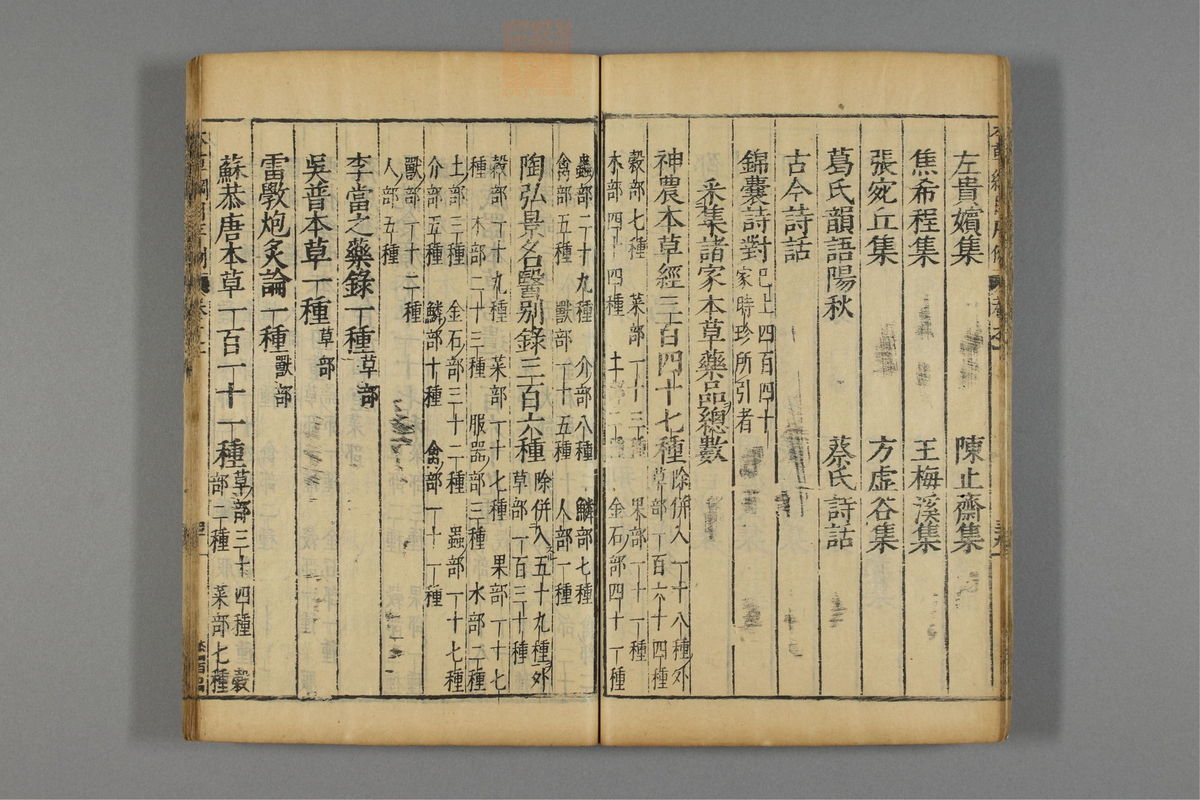 左貴嬪集　陳止齋集
焦希程集　王梅溪集
張宛丘集　方虛谷集
葛氏韻語陽秋　蔡氏詩話
古今詩話
錦囊詩對
巳上四百四十
家時珍所引者
采集諸家本草藥品總數
神農本草經三百四十七種
除併入一十八種外
草部一百六十四種
穀部七種　菜部一十三種　果部一十一種
木部四十四種　土部二種　金石部四十一種
蟲部二十九種　介部八種　鱗部七種
禽部五種　獸部一十五種　人部一種
陶弘景名醫别錄三百六種
除併入五十九種外
草部一百三十種
穀部一十九種　菜部一十七種　果部一十七
種　木部二十三種　服器部三種　水部二種
土部三種　金石部三十二種　蟲部一十七種
介部五種　鱗部十種　禽部一十一種
獸部一十二種
人部五種
李當之藥錄一種
草部
吳普本草一種
草部
雷斆炮炙論一種
獸部
蘇恭唐本草一百一十一種
草部三十四種　穀
部二種　菜部七種